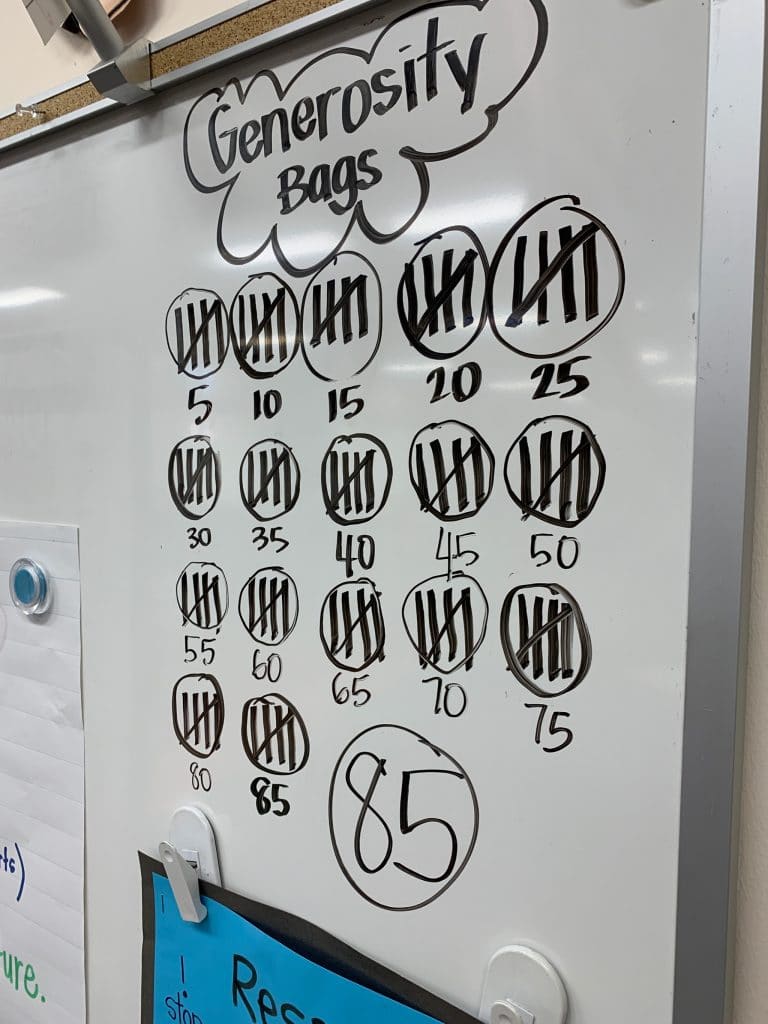 Generosity
Bags
5 10 15 20 25
30 35 40 45 50
55 60 65 70 75
80 85
85
ure.
stop